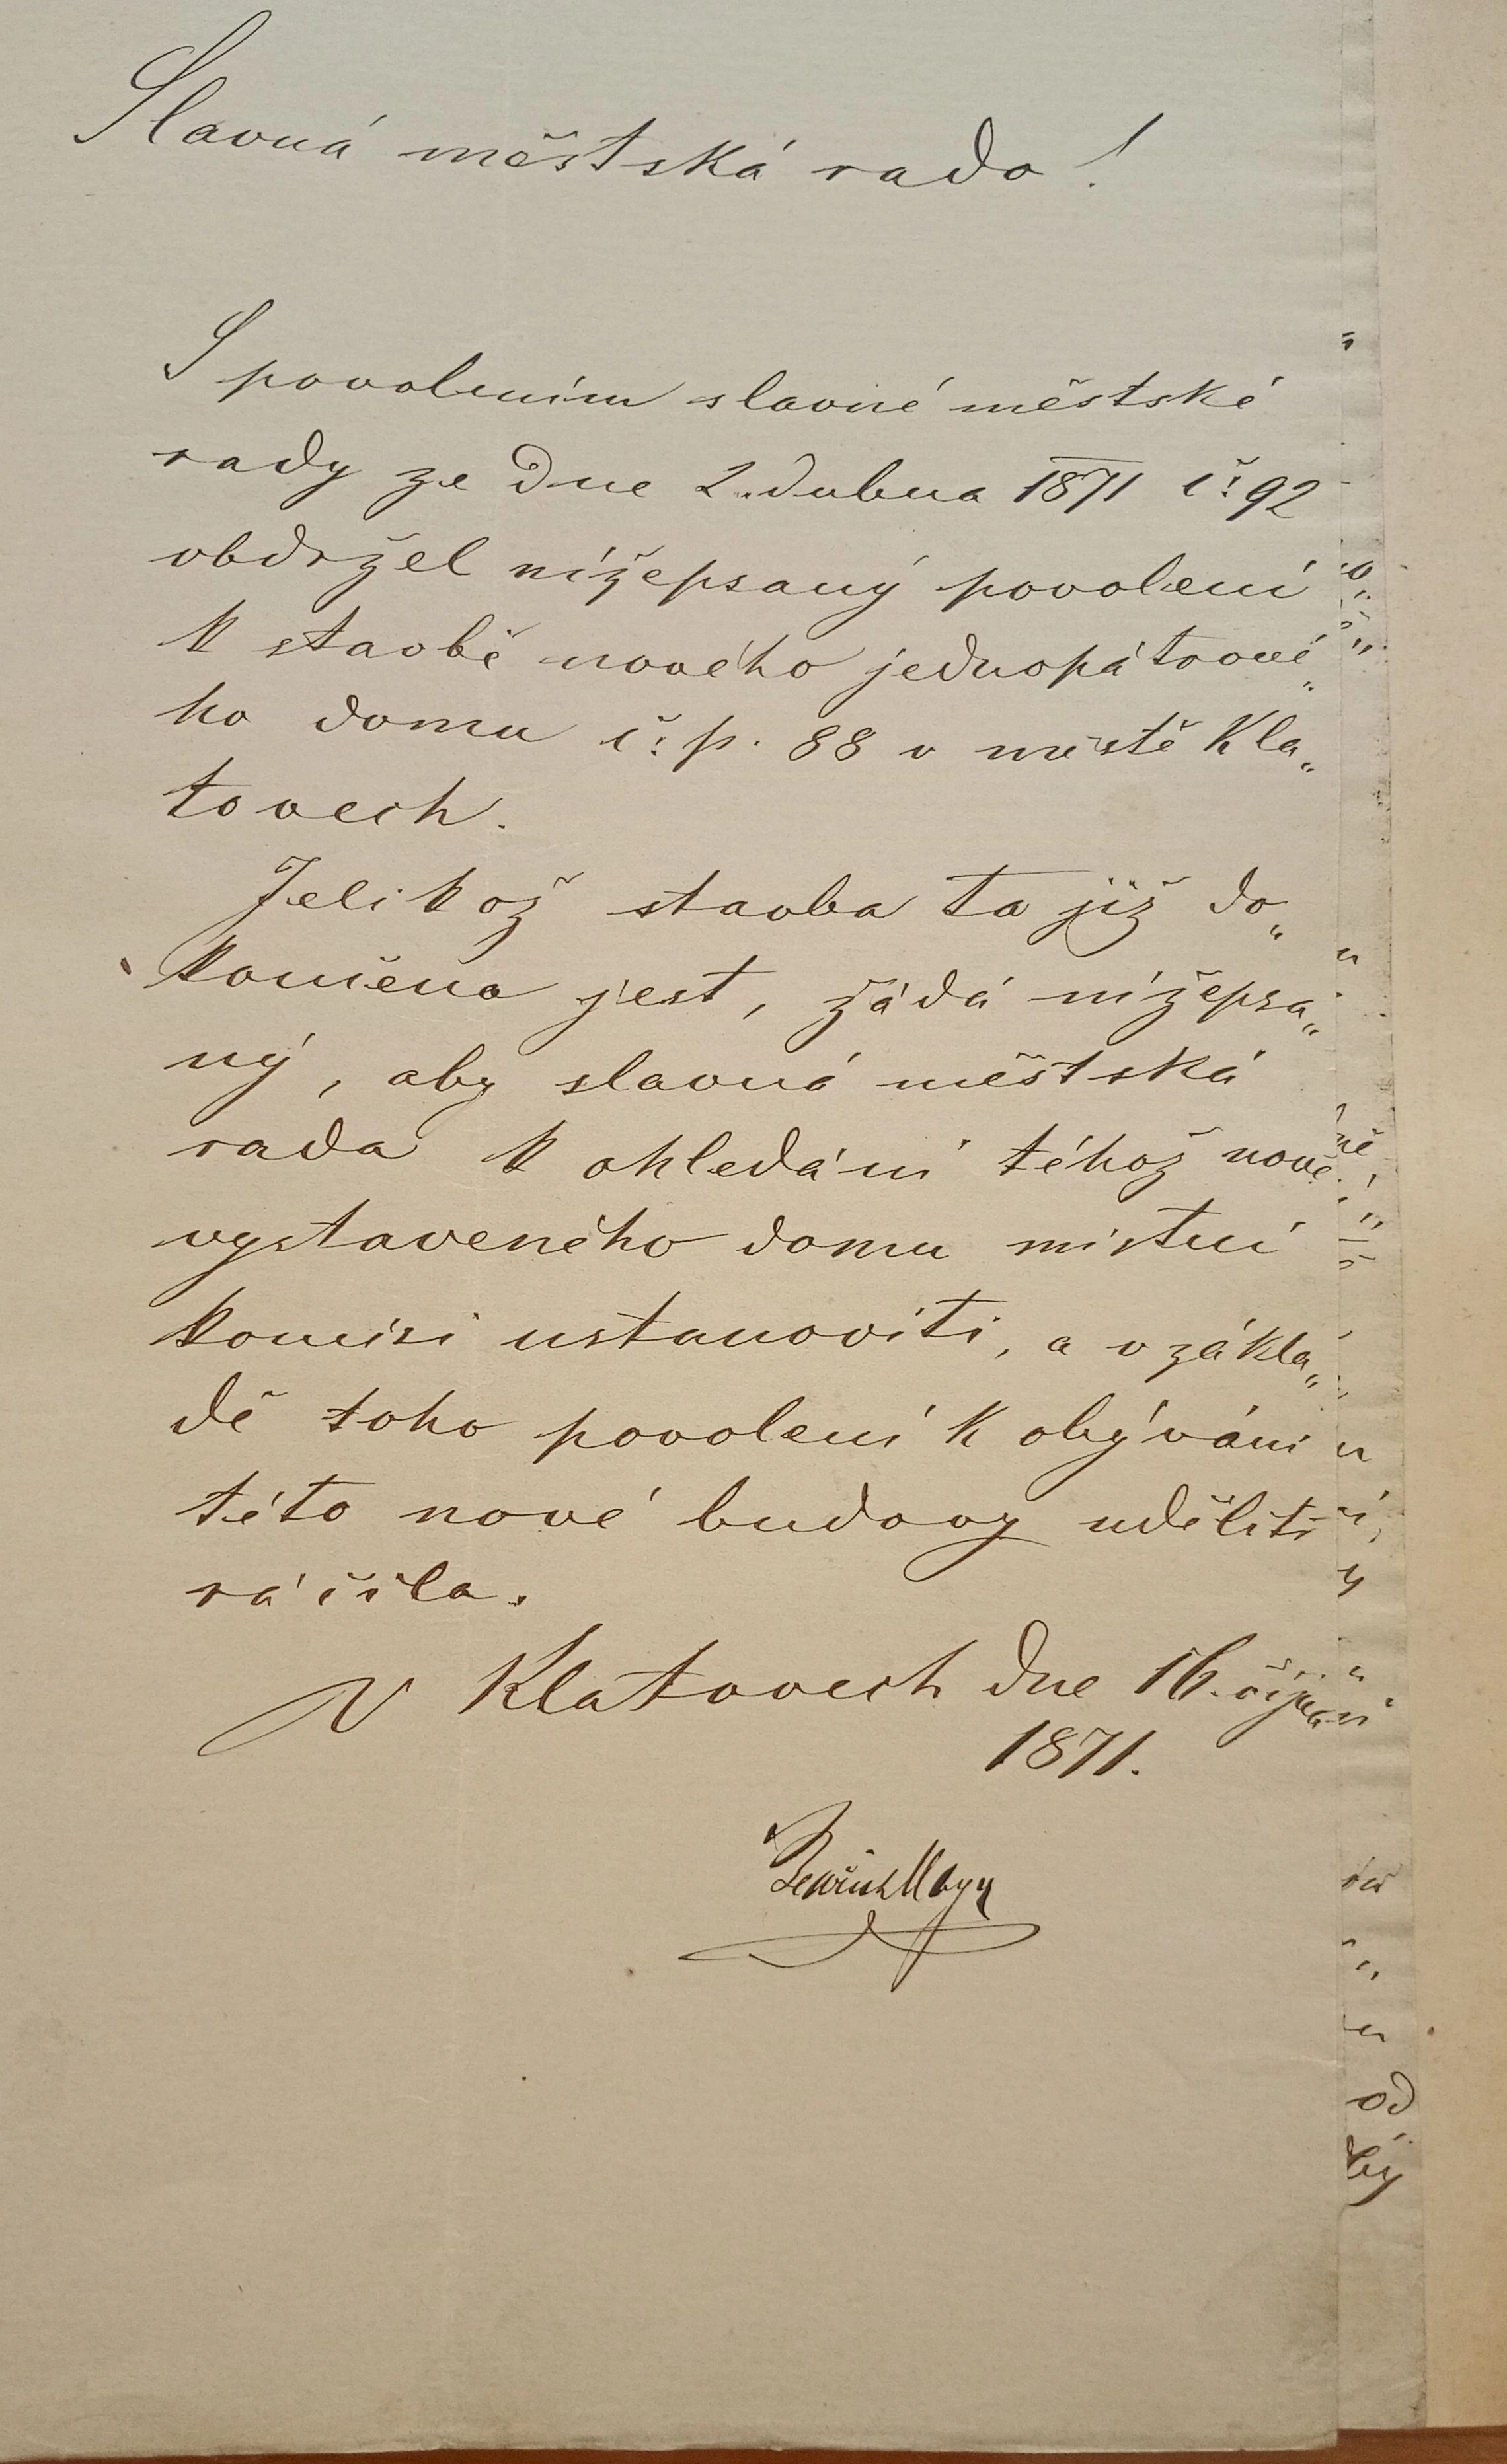 Slavná městská rado!
S povolením slavné městské
rady ze dne 2. dubna 1871 č: 92
obdržel nížepsaný povolení
k stavbě nového jednopátrové„
ho domu č: p. 88 v městě Kla„
tovech.
Jelikož stavba ta již do„
končena jest, žádá nížepsa„
ný, aby slavná městská
rada k ohledání téhož nově
vystaveného domu místní
komisi ustanoviti, a v zákla„
dě toho povolení k obývání
této nové budovy uděliti
ráčila.
V Klatovech dne 16. října
1871.
od